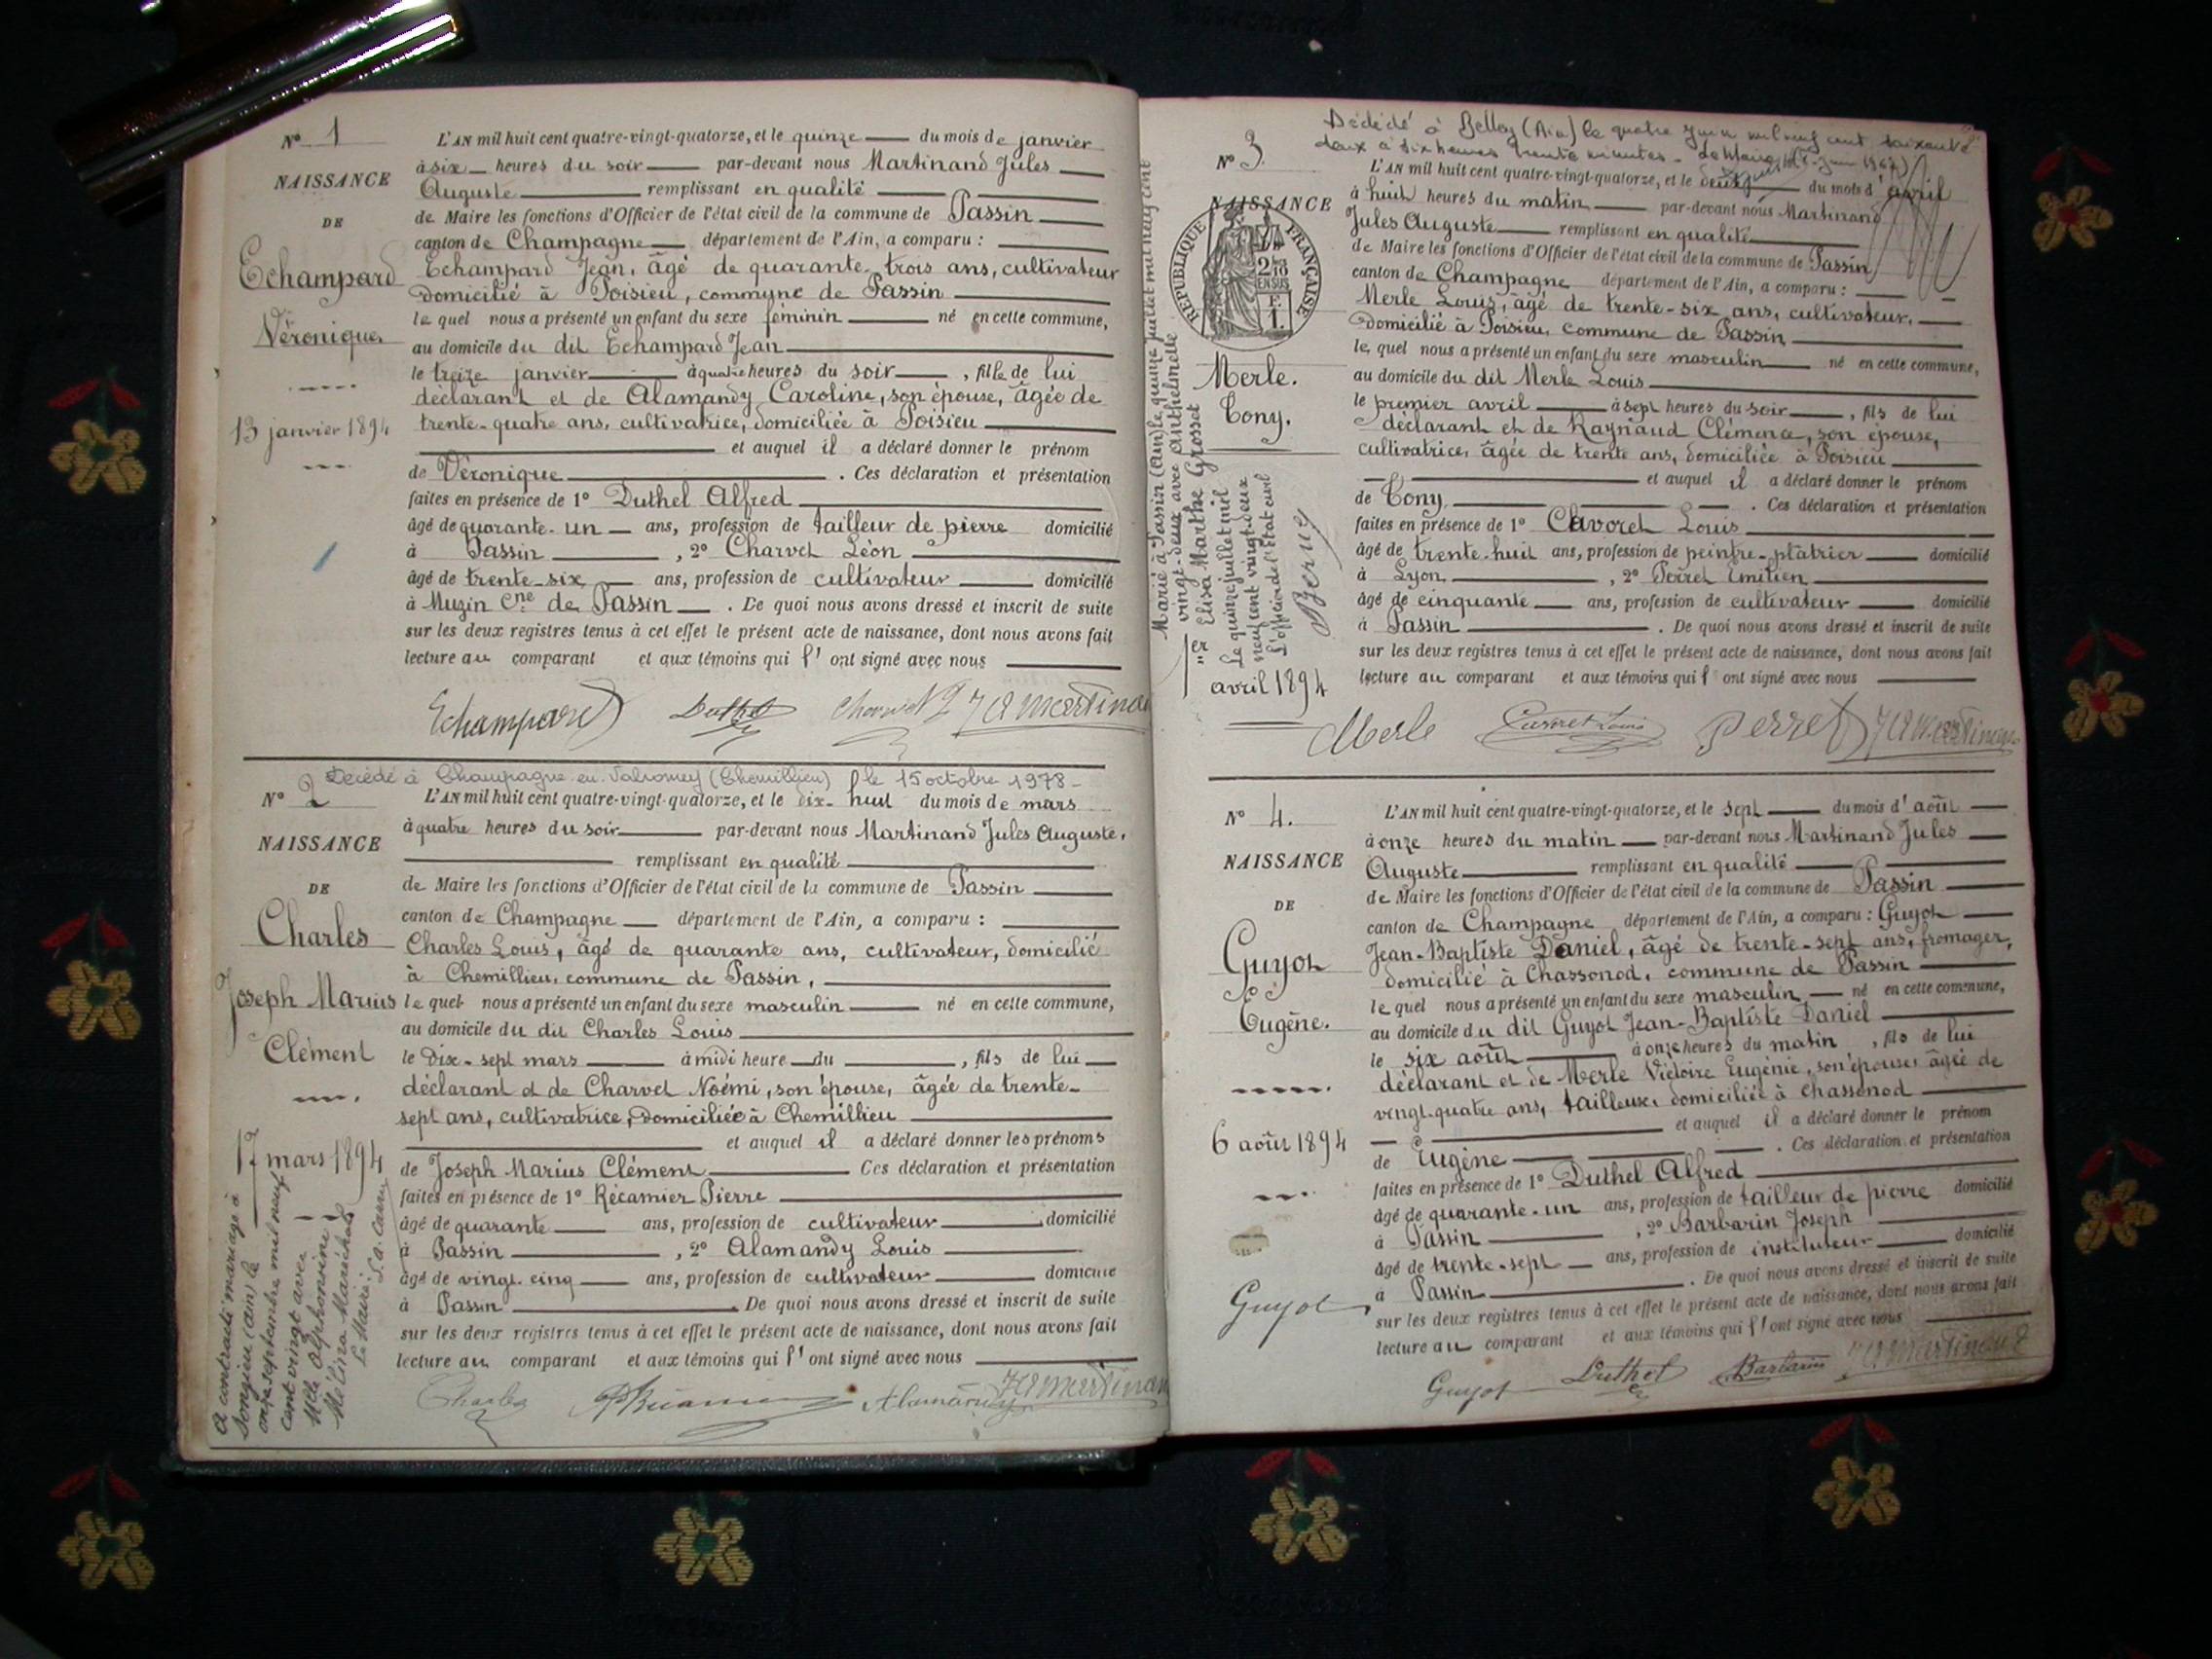 N° 1
NAISSANCE
DE
Echampard
Véronique
13 janvier 1894
L'AN mil huit cent quatre-vingt-quatorze, et le quinze du mois de janvier
à six heures du soir par-devant nous Martinand Jules
Auguste remplissant en qualité
de Maire les fonctions d'Officier de l'état civil de la commune de Passin
canton de Champagne département de l'Ain, a comparu :
Echampard Jean, âgé de quarante-trois ans, cultivateur
domicilié à Poisieu, commune de Passin
le quel nous a présenté un enfant du sexe féminin né en cette commune,
au domicile du dit Echampard Jean
le treize janvier à quatre heures du soir, fille de lui
déclarant et de Alamandy Caroline, son épouse, âgée de
trente-quatre ans, cultivatrice, domiciliée à Poisieu
et auquel il a déclaré donner le prénom
de Véronique. Ces déclaration et présentation
faites en présence de 1° Duthel Alfred
âgé de quarante-un ans, profession de tailleur de pierre domicilié
à Passin, 2° Charvet Léon
âgé de trente-six ans, profession de cultivateur domicilié
à Muzin Cne de Passin. De quoi nous avons dressé et inscrit de suite
sur les deux registres tenus à cet effet le présent acte de naissance, dont nous avons fait
lecture au comparant et aux témoins qui l'ont signé avec nous
Echampard Duthel Charvet JAMartinand
Décédé à Champagne-en-Valromey (Chemillieu) le 15 octobre 1978
N° 2
NAISSANCE
DE
Charles
Joseph Marius
Clément
17 mars 1894
A contracté mariage à
Songieu (Ain) le
onze septembre mil neuf
cent vingt avec
Mlle Alphonsine
Mélina Maréchal
Le Maire
L'AN mil huit cent quatre-vingt-quatorze, et le dix-huit du mois de mars
à quatre heures du soir par-devant nous Martinand Jules Auguste,
remplissant en qualité
de Maire les fonctions d'Officier de l'état civil de la commune de Passin
canton de Champagne département de l'Ain, a comparu :
Charles Louis, âgé de quarante ans, cultivateur, domicilié
à Chemillieu, commune de Passin,
le quel nous a présenté un enfant du sexe masculin né en cette commune,
au domicile du dit Charles Louis
le dix-sept mars à midi heure du, fils de lui
déclarant et de Charvet Noémi, son épouse, âgée de trente-
sept ans, cultivatrice, domiciliée à Chemillieu
et auquel il a déclaré donner les prénoms
de Joseph Marius Clément Ces déclaration et présentation
faites en présence de 1° Récamier Pierre
âgé de quarante ans, profession de cultivateur domicilié
à Passin, 2° Alamandy Louis
âgé de vingt-cinq ans, profession de cultivateur domicilié
à Passin. De quoi nous avons dressé et inscrit de suite
sur les deux registres tenus à cet effet le présent acte de naissance, dont nous avons fait
lecture au comparant et aux témoins qui l'ont signé avec nous
Charles PRécamier Alamandy JAMartinand
Décédé à Belley (Ain) le quatre juin mil neuf cent soixante
deux à six heures trente minutes -
N° 3.
NAISSANCE
RÉPUBLIQUE FRANÇAISE
2/10
EN SUS
F.
1.
Merle.
Tony.
1er
avril 1894
Marié à Passin (Ain) le quinze juillet mil neuf cent
vingt-deux avec Anthelmette
Elisa Marthe Grosset
Le quinze juillet mil
neuf cent vingt-deux
L'officier de l'état civil
L'AN mil huit cent quatre-vingt-quatorze, et le deux du mois d'avril
à huit heures du matin par-devant nous Martinand
Jules Auguste remplissant en qualité
de Maire les fonctions d'Officier de l'état civil de la commune de Passin
canton de Champagne département de l'Ain, a comparu :
Merle Louis, âgé de trente-six ans, cultivateur,
domicilié à Poisieu, commune de Passin
le quel nous a présenté un enfant du sexe masculin né en cette commune,
au domicile du dit Merle Louis
le premier avril à sept heures du soir, fils de lui
déclarant et de Raynaud Clémence, son épouse,
cultivatrice, âgée de trente ans, domiciliée à Poisieu
et auquel il a déclaré donner le prénom
de Tony. Ces déclaration et présentation
faites en présence de 1° Cavoret Louis
âgé de trente-huit ans, profession de peintre-plâtrier domicilié
à Lyon, 2° Perret Emilien
âgé de cinquante ans, profession de cultivateur domicilié
à Passin. De quoi nous avons dressé et inscrit de suite
sur les deux registres tenus à cet effet le présent acte de naissance, dont nous avons fait
lecture au comparant et aux témoins qui l'ont signé avec nous
Merle Cavoret Louis Perret JAMartinand
N° 4.
NAISSANCE
DE
Guyot
Eugène.
6 août 1894
Guyot
L'AN mil huit cent quatre-vingt-quatorze, et le sept du mois d'août
à onze heures du matin par-devant nous Martinand Jules
Auguste remplissant en qualité
de Maire les fonctions d'Officier de l'état civil de la commune de Passin
canton de Champagne département de l'Ain, a comparu : Guyot
Jean-Baptiste Daniel, âgé de trente-sept ans, fromager,
domicilié à Chassonod, commune de Passin
le quel nous a présenté un enfant du sexe masculin né en cette commune,
au domicile du dit Guyot Jean-Baptiste Daniel
le six août à onze heures du matin, fils de lui
déclarant et de Merle Victoire Eugénie, son épouse, âgée de
vingt-quatre ans, tailleuse, domiciliée à Chassonod
et auquel il a déclaré donner le prénom
de Eugène. Ces déclaration et présentation
faites en présence de 1° Duthel Alfred
âgé de quarante-un ans, profession de tailleur de pierre domicilié
à Passin, 2° Barbarin Joseph
âgé de trente-sept ans, profession de instituteur domicilié
à Passin. De quoi nous avons dressé et inscrit de suite
sur les deux registres tenus à cet effet le présent acte de naissance, dont nous avons fait
lecture au comparant et aux témoins qui l'ont signé avec nous
Guyot Duthel Barbarin JAMartinand